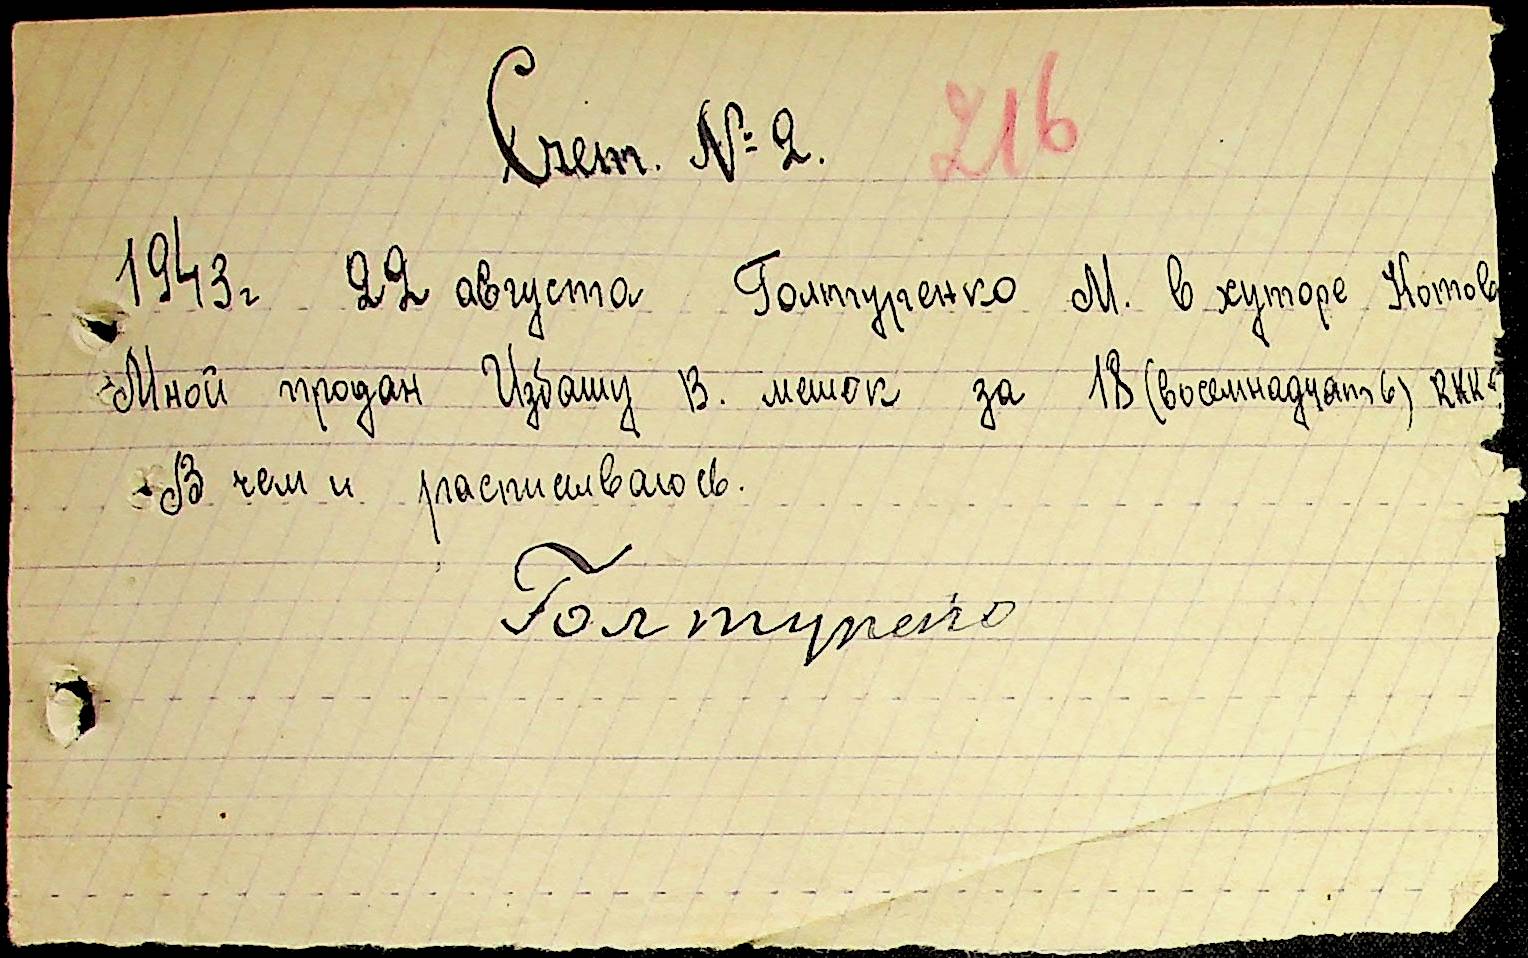 Счет. № 2. 216
1943г 22 августа Голтуренко М. в хуторе Котова
Мной продан Избашу В. мешок за 18 (восемнадцать) RKK
В чем и расписываюсь.
Голтуренко